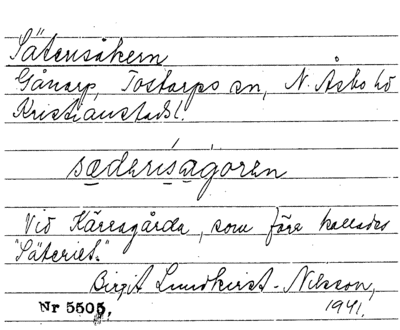 Sätersåkern
Gånarp, Tostarps sn, N. Åsbo hd
Kristianstads l.
sæderisagoren
Vid Käreagårda, som före kallades
"Säteriet."
Birgit Lundkvist-Nilsson,
Nr 5505. 1941.